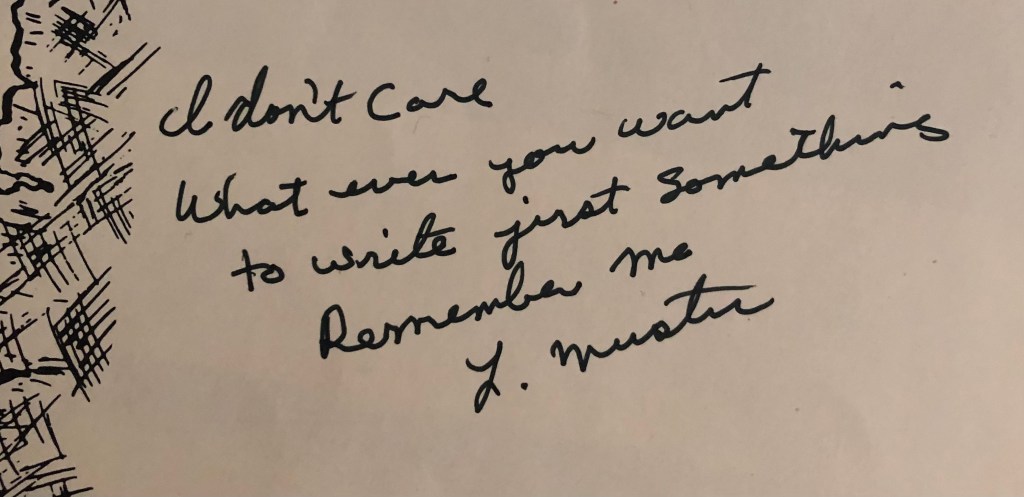 I don't care
What ever you want
to write jirst something
Remember me
L. Muster